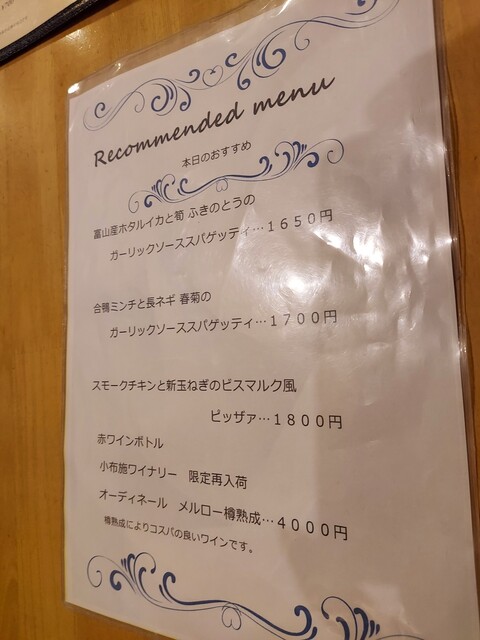 Recommended menu
本日のおすすめ
富山産ホタルイカと筍 ふきのとうの
ガーリックソーススパゲッティ…1650円
合鴨ミンチと長ネギ 春菊の
ガーリックソーススパゲッティ…1700円
スモークチキンと新玉ねぎのビスマルク風
ピッザァ…1800円
赤ワインボトル
小布施ワイナリー 限定再入荷
オーディネール メルロー樽熟成…4000円
樽熟成によりコスパの良いワインです。